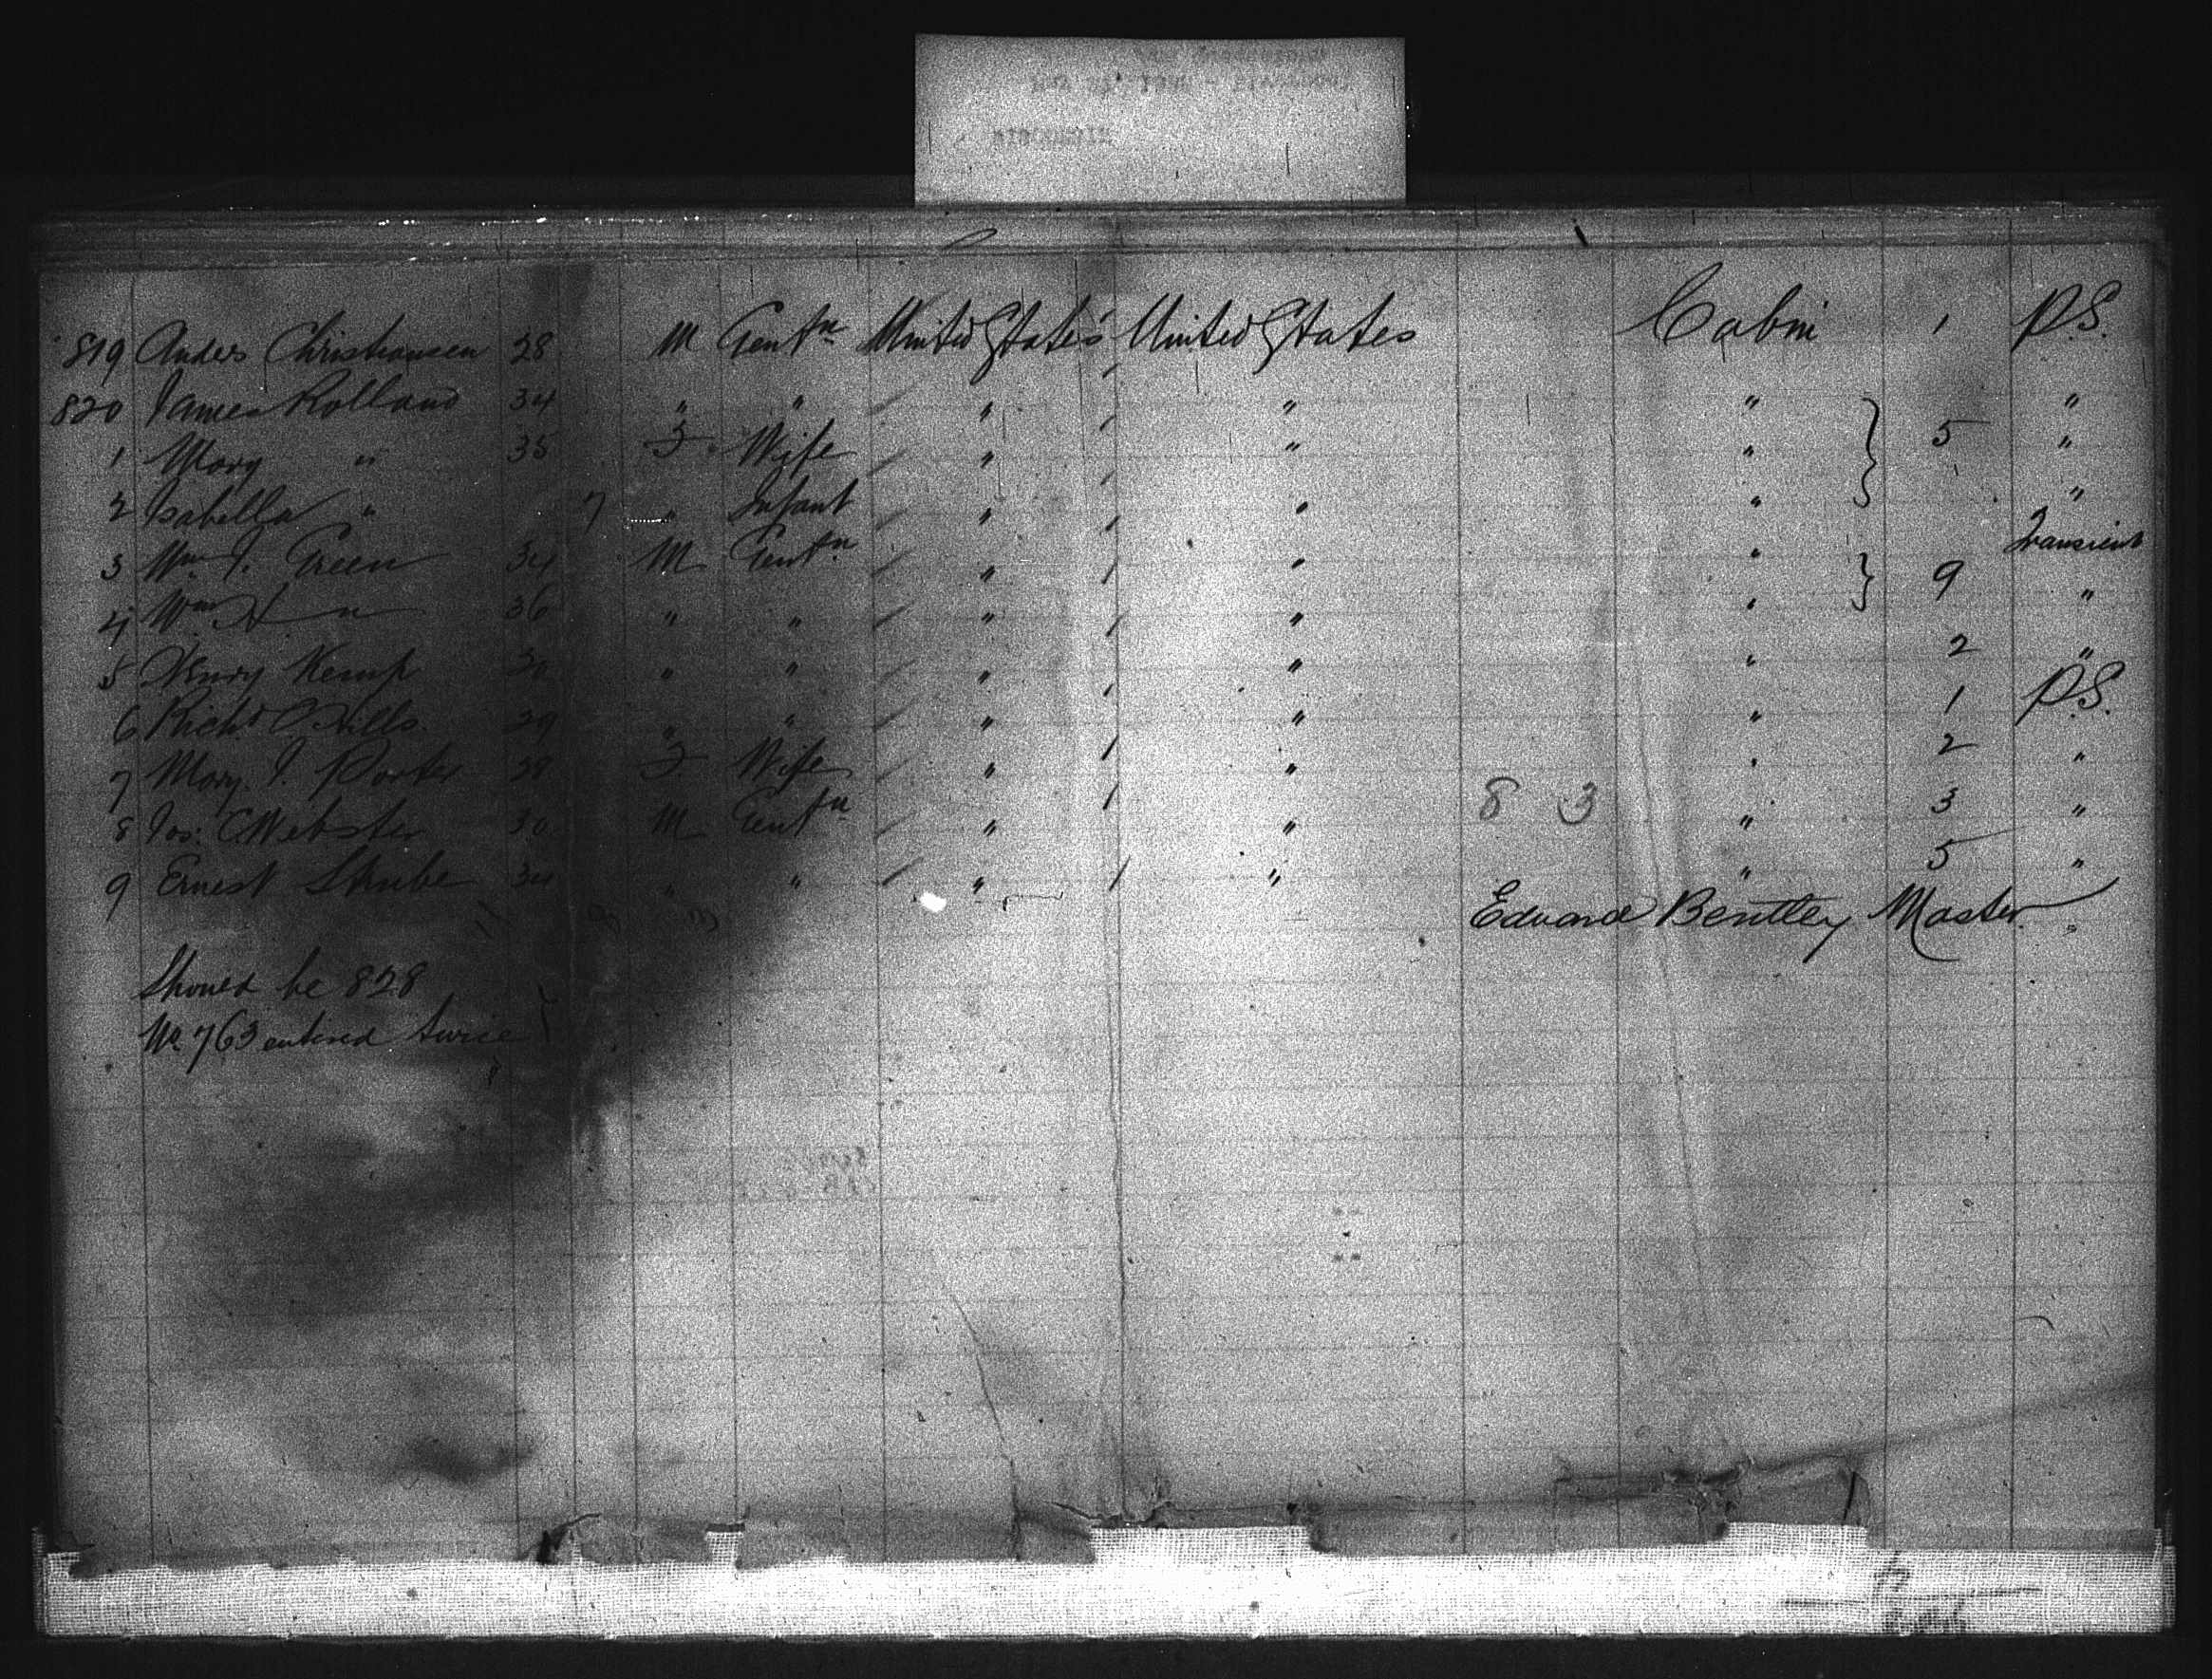 819 Anders Christiansen 28 M Gentn United States United States Cabin 1 P.S.
820 James Rolland 34 " " " " " "
1 Mary " 35 F Wife " " " 5 "
2 Isabella " 7 " Infant " " " "
3 Wm J. Green 34 M Gentn " " " Transient
4 Wm 36 " " " " " 9 "
5 Henry Kemp 30 " " " " " 2 "
6 Richd C. 29 " " " " " 1 P.S.
7 Mary J. Porter 28 F Wife " " " 2 "
8 Jos: C. Webster 30 M Gentn " " 8 3 " 3 "
9 Ernest Strube 34 " " " " " 5 "
11 8 3
Edward Bentley Master
Should be 828
No. 763 entered twice